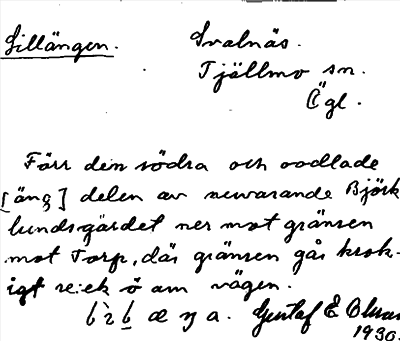 Lillängen. Svalnäs.
Tjällmo sn.
Ögl.
Förr den södra och oodlade
[äng] delen av nuvarande Björk
lundsgärdet ner mot gränsen
mot Torp, där gränsen går krok-
igt ö om vägen.
Gustaf E Olsson
1930.